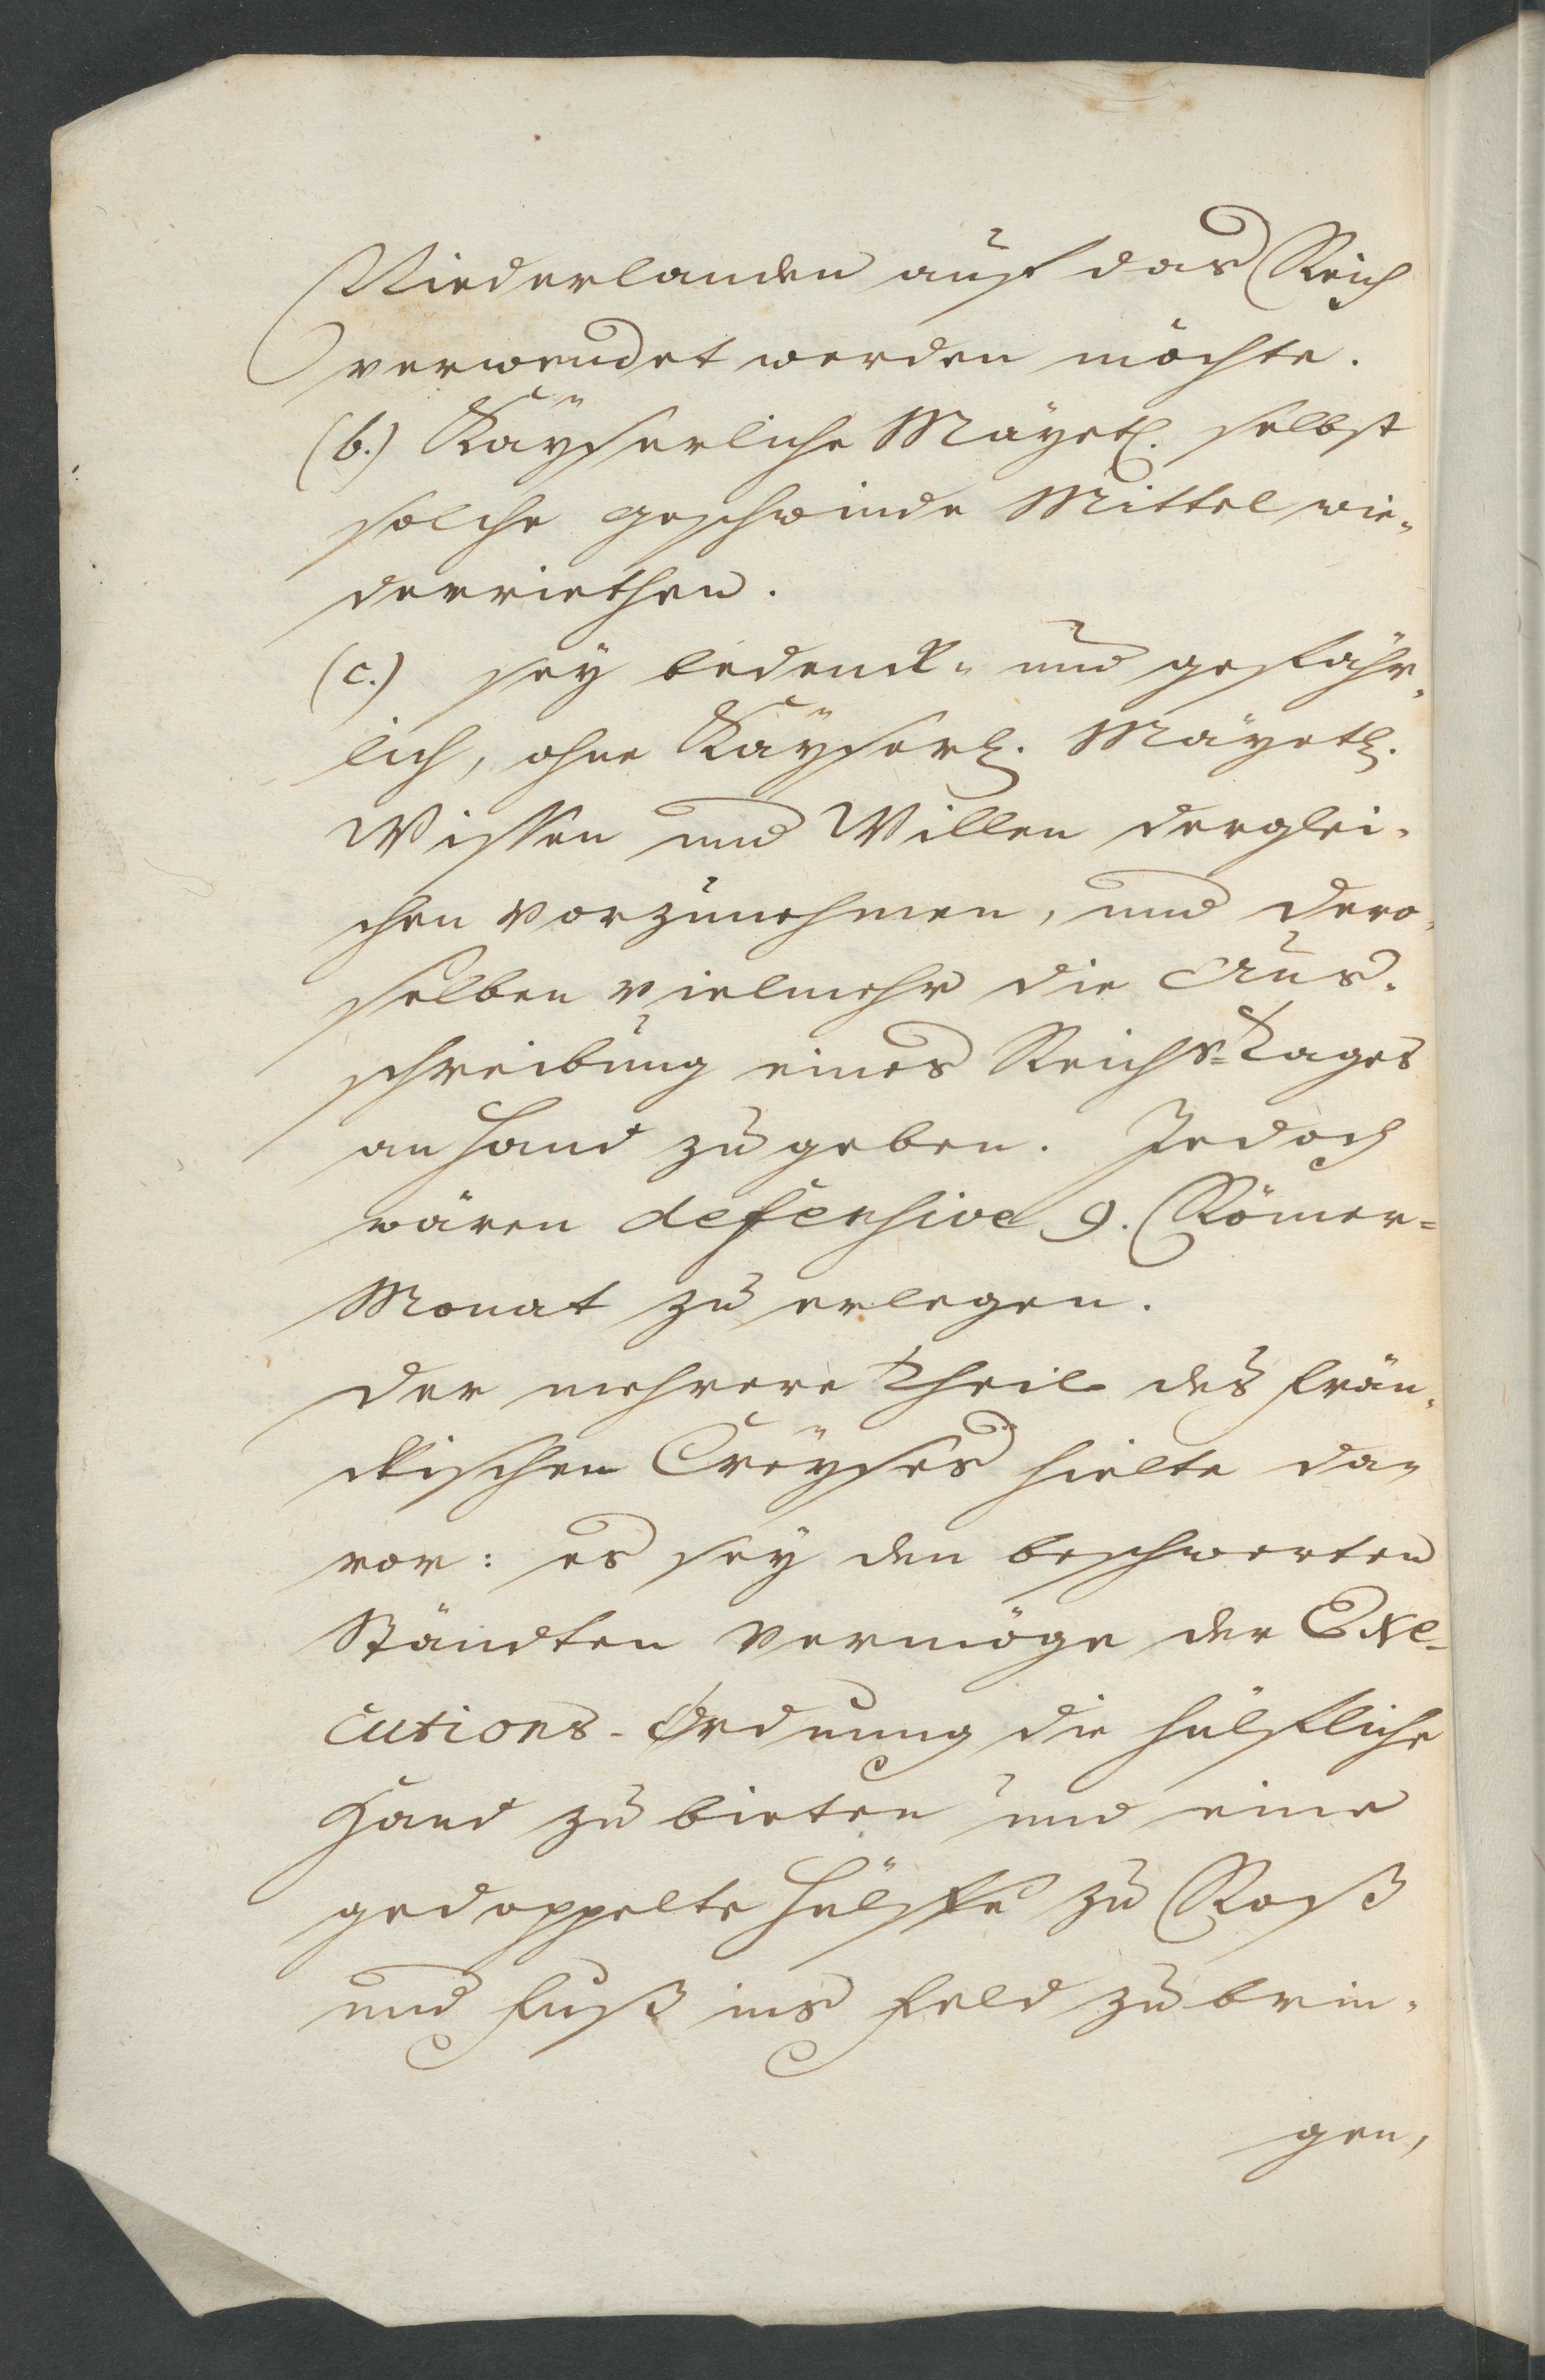 Niederlanden auff das Reich
verwendet werden möchte.
(b.) Kaÿserliche Mäyetl. selbst
solche geschwinde Mittel wie„
derriethen.
(c.) seÿ bedenck„ und gefähr„
lich, ohne Kaÿserl. Mäyetl.
Wissen und Willen derglei„
chen vorzunehmen, und dero„
selben vielmehr die Aus„
schreibung eines Reichs=Tages
an Hand zu geben. Jedoch
wären defensive 9. Römer=
Monat zu erlegen.
Der mehrere Theil des Frän„
ckischen Creÿses hielte da„
vor: es seÿ den beschwerten
Ständten vermöge der Exe-
cutions-Ordnung die hülffliche
Hand zu bieten und eine
gedoppelte Hülffe zu Roß
und Fuß ins Feld zu brin„
gen,